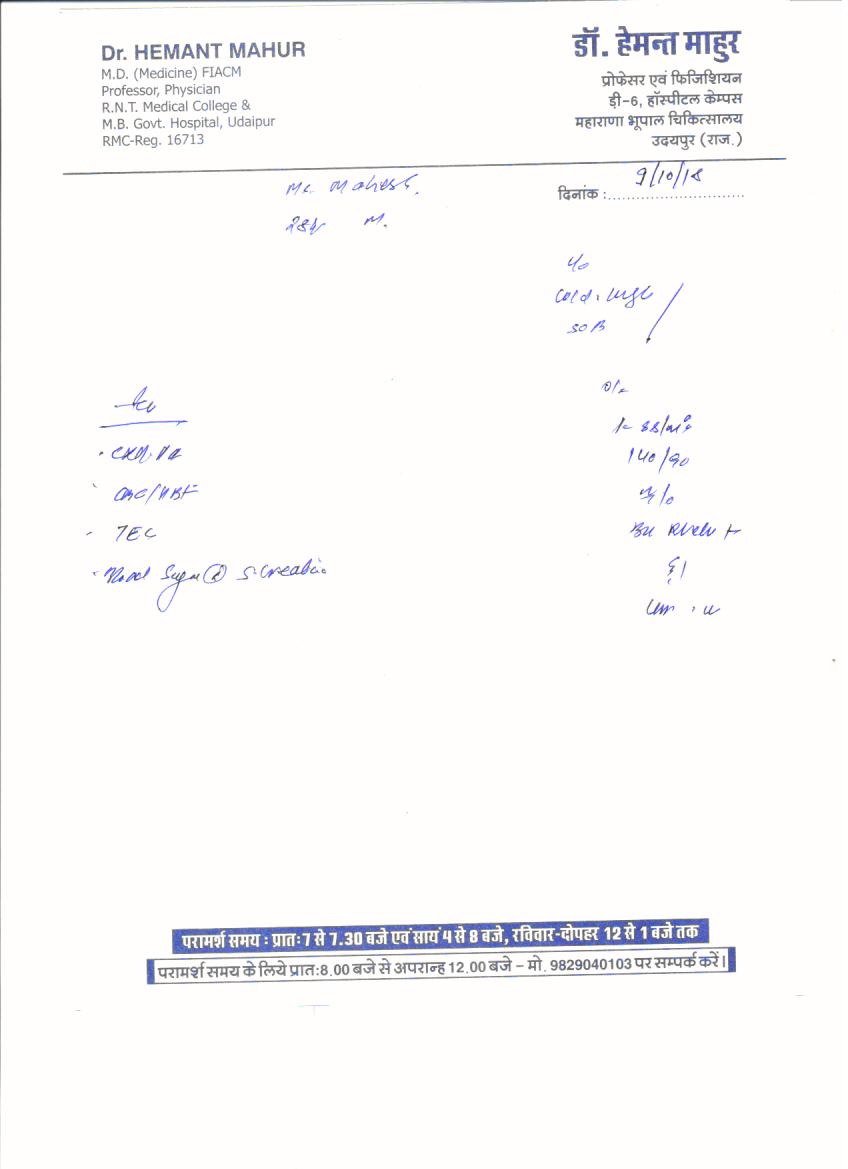 Dr. HEMANT MAHUR
M.D. (Medicine) FIACM
Professor, Physician
R.N.T. Medical College &
M.B. Govt. Hospital, Udaipur
RMC-Reg. 16713
डॉ. हेमन्त माहुर
प्रोफेसर एवं फिजिशियन
डी-6, हॉस्पीटल केम्पस
महाराणा भूपाल चिकित्सालय
उदयपुर (राज.)
Mr. Mahesh.
दिनांक : 9/10/18
28y M.
c/o
Cold,
SOB
o/e
88/min
140/90
CXR. PA
CBC/
TEC
Blood Sugar S. Creatinine
परामर्श समय : प्रातः 7 से 7.30 बजे एवं सायं 4 से 8 बजे, रविवार-दोपहर 12 से 1 बजे तक
परामर्श समय के लिये प्रातः 8.00 बजे से अपरान्ह 12.00 बजे - मो. 9829040103 पर सम्पर्क करें।